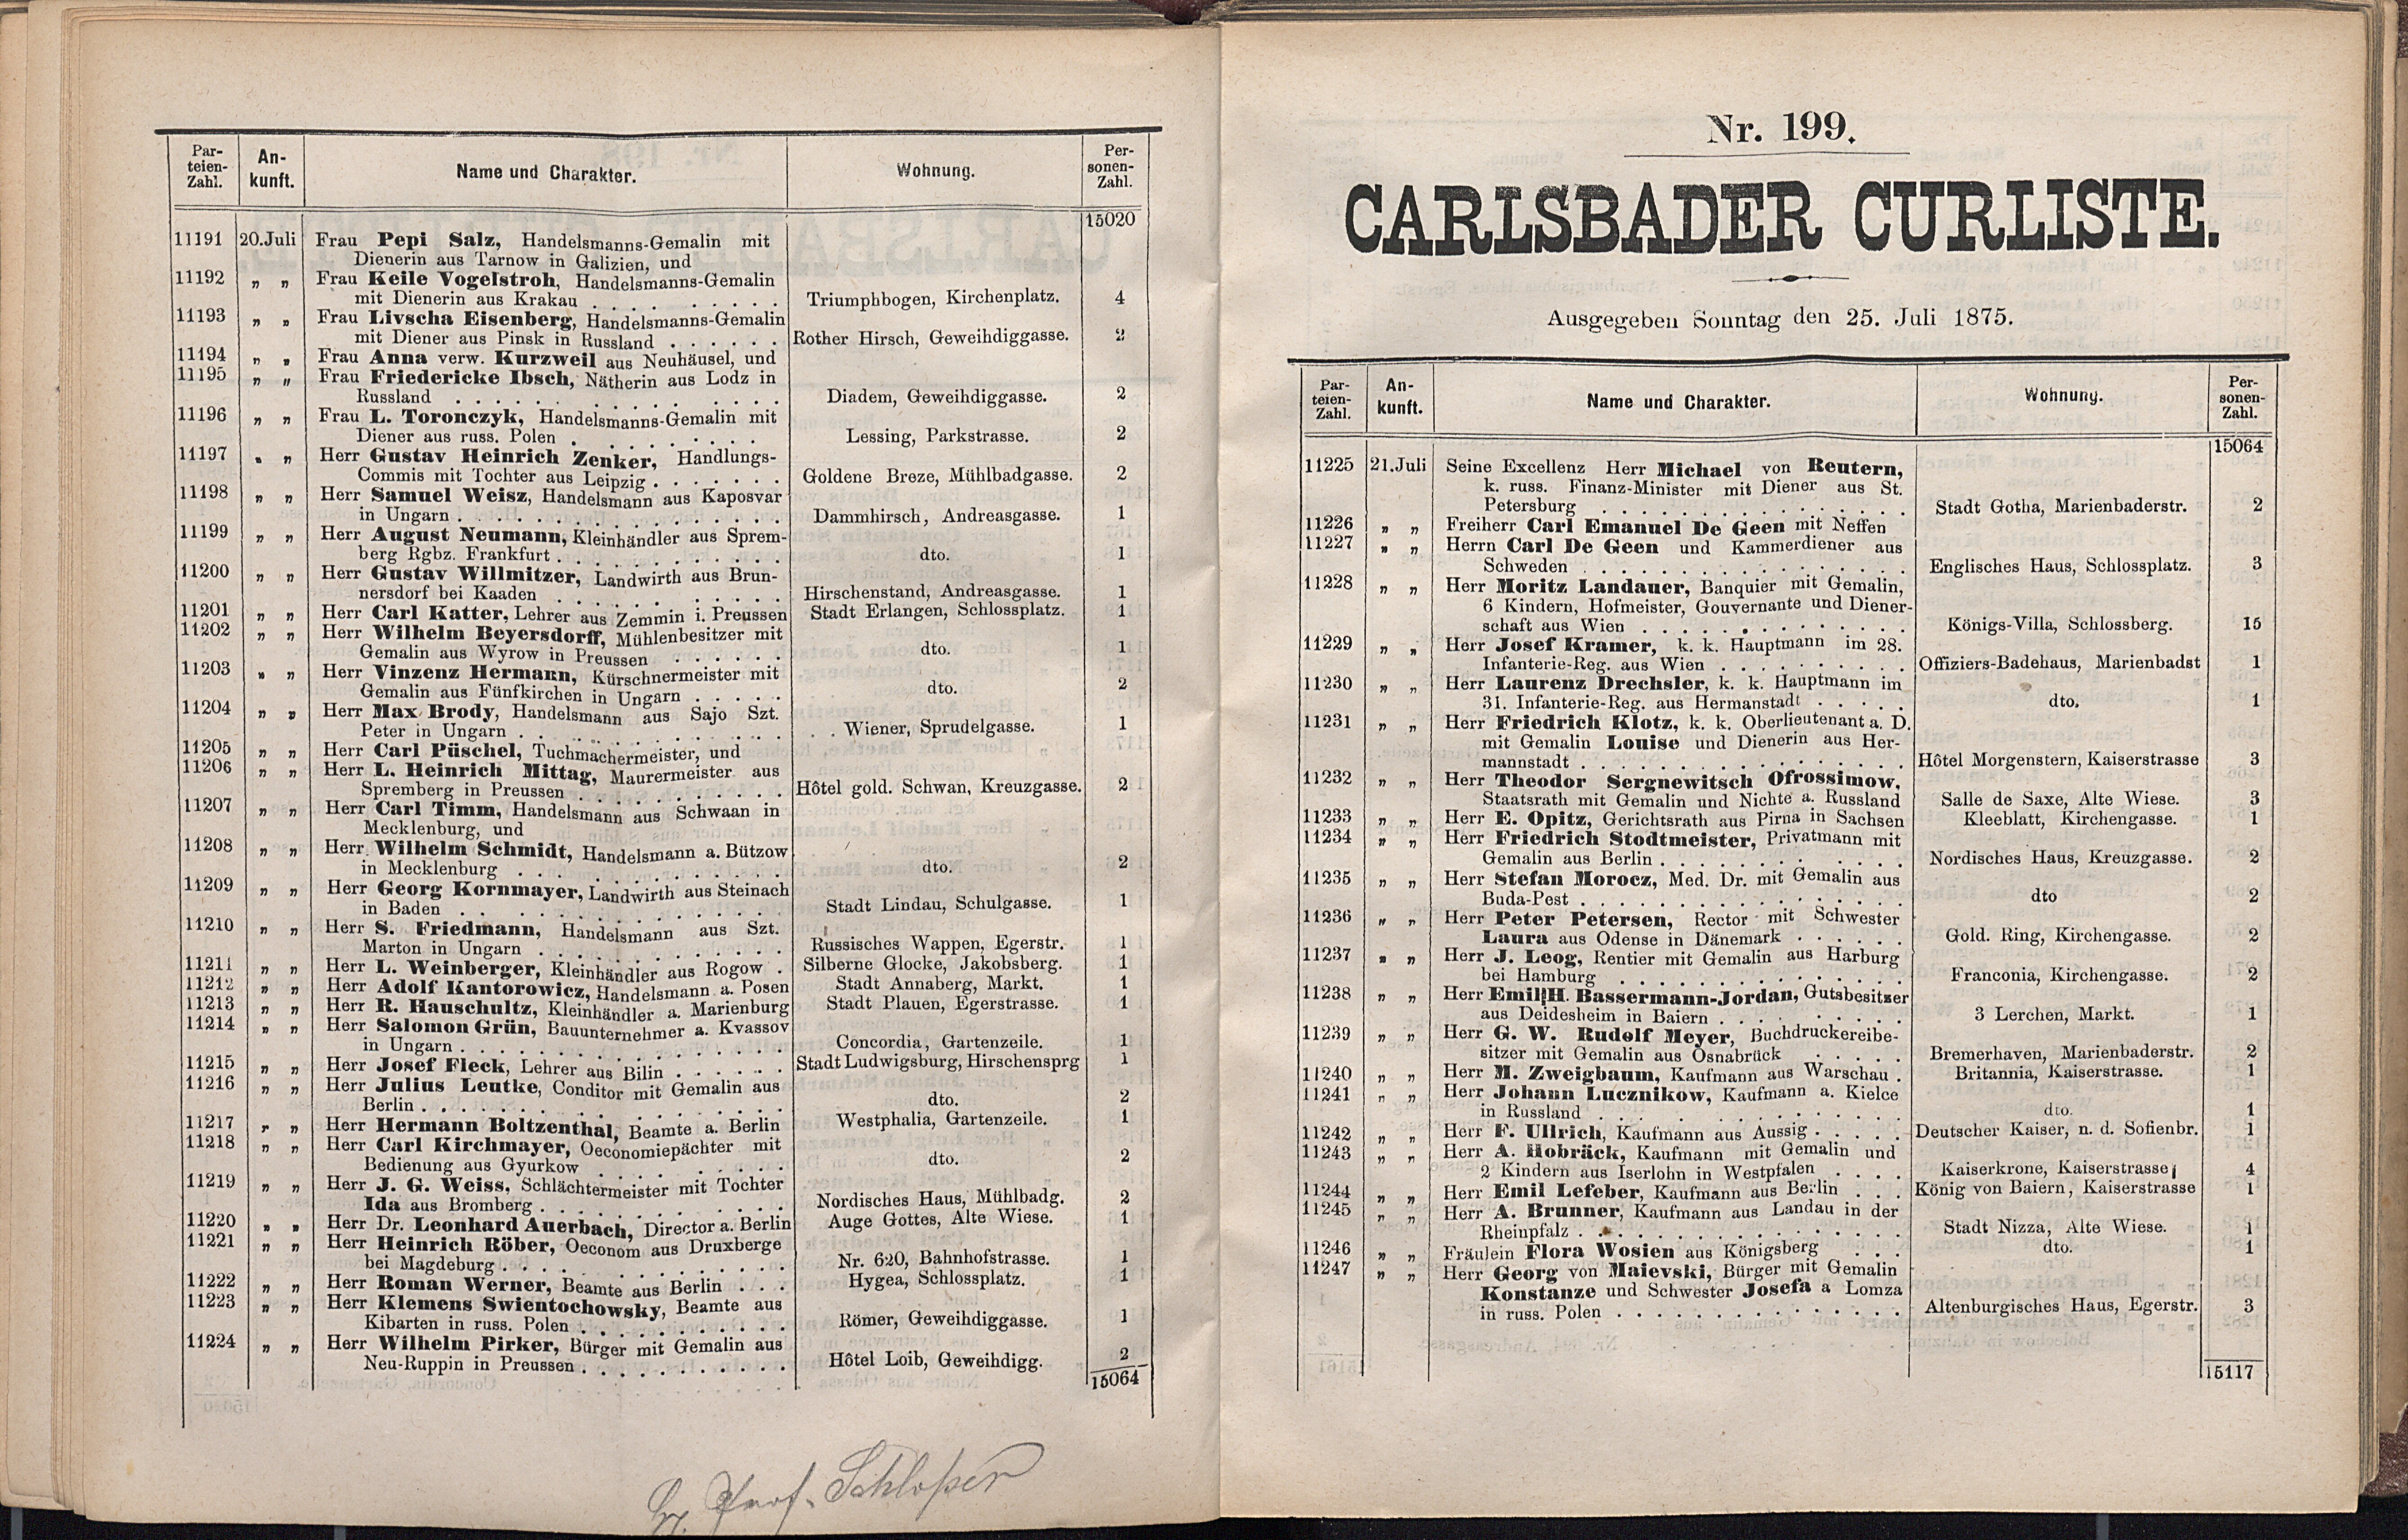 Par-
teien-
Zahl.
An-
kunft.
Name und Charakter.
Wohnung.
Per-
sonen-
Zahl.
15020
11191 20.Juli Frau Pepi Salz, Handelsmanns-Gemalin mit
Dienerin aus Tarnow in Galizien, und
11192 „ „ Frau Keile Vogelstroh, Handelsmanns-Gemalin
mit Dienerin aus Krakau . . . . . . . . . Triumphbogen, Kirchenplatz. 4
11193 „ „ Frau Livscha Eisenberg, Handelsmanns-Gemalin
mit Diener aus Pinsk in Russland . . . . . . Rother Hirsch, Geweihdiggasse. 2
11194 „ „ Frau Anna verw. Kurzweil aus Neuhäusel, und
11195 „ „ Frau Friedericke Ibsch, Nätherin aus Lodz in
Russland . . . . . . . . . . . . . Diadem, Geweihdiggasse. 2
11196 „ „ Frau L. Toronczyk, Handelsmanns-Gemalin mit
Diener aus russ. Polen . . . . . . . . . Lessing, Parkstrasse. 2
11197 „ „ Herr Gustav Heinrich Zenker, Handlungs-
Commis mit Tochter aus Leipzig . . . . . . . Goldene Breze, Mühlbadgasse. 2
11198 „ „ Herr Samuel Weisz, Handelsmann aus Kaposvar
in Ungarn . . . . . . . . . . . . . . Dammhirsch, Andreasgasse. 1
11199 „ „ Herr August Neumann, Kleinhändler aus Sprem-
berg Rgbz. Frankfurt . . . . . . . . . . dto. 1
11200 „ „ Herr Gustav Willmitzer, Landwirth aus Brun-
nersdorf bei Kaaden . . . . . . . . . . Hirschenstand, Andreasgasse. 1
11201 „ „ Herr Carl Katter, Lehrer aus Zemmin i. Preussen Stadt Erlangen, Schlossplatz. 1
11202 „ „ Herr Wilhelm Beyersdorff, Mühlenbesitzer mit
Gemalin aus Wyrow in Preussen . . . . . . dto. 1
11203 „ „ Herr Vinzenz Hermann, Kürschnermeister mit
Gemalin aus Fünfkirchen in Ungarn . . . . . dto. 2
11204 „ „ Herr Max Brody, Handelsmann aus Sajo Szt.
Peter in Ungarn . . . . . . . . . . . . Wiener, Sprudelgasse. 1
11205 „ „ Herr Carl Püschel, Tuchmachermeister, und
11206 „ „ Herr L. Heinrich Mittag, Maurermeister aus
Spremberg in Preussen . . . . . . . . . Hôtel gold. Schwan, Kreuzgasse. 2
11207 „ „ Herr Carl Timm, Handelsmann aus Schwaan in
Mecklenburg, und
11208 „ „ Herr Wilhelm Schmidt, Handelsmann a. Bützow
in Mecklenburg . . . . . . . . . . . . dto. 2
11209 „ „ Herr Georg Kornmayer, Landwirth aus Steinach
in Baden . . . . . . . . . . . . . Stadt Lindau, Schulgasse. 1
11210 „ „ Herr S. Friedmann, Handelsmann aus Szt.
Marton in Ungarn . . . . . . . . . . . Russisches Wappen, Egerstr. 1
11211 „ „ Herr L. Weinberger, Kleinhändler aus Rogow . Silberne Glocke, Jakobsberg. 1
11212 „ „ Herr Adolf Kantorowicz, Handelsmann a. Posen Stadt Annaberg, Markt. 1
11213 „ „ Herr R. Hauschultz, Kleinhändler a. Marienburg Stadt Plauen, Egerstrasse. 1
11214 „ „ Herr Salomon Grün, Bauunternehmer a. Kvassov
in Ungarn . . . . . . . . . . . . . . Concordia, Gartenzeile. 1
11215 „ „ Herr Josef Fleck, Lehrer aus Bilin . . . . . . Stadt Ludwigsburg, Hirschensprg 1
11216 „ „ Herr Julius Leutke, Conditor mit Gemalin aus
Berlin . . . . . . . . . . . . . . . dto. 2
11217 „ „ Herr Hermann Boltzenthal, Beamte a. Berlin Westphalia, Gartenzeile. 1
11218 „ „ Herr Carl Kirchmayer, Oeconomiepächter mit
Bedienung aus Gyurkow . . . . . . . . . dto. 2
11219 „ „ Herr J. G. Weiss, Schlächtermeister mit Tochter
Ida aus Bromberg . . . . . . . . . . . Nordisches Haus, Mühlbadg. 2
11220 „ „ Herr Dr. Leonhard Auerbach, Director a. Berlin Auge Gottes, Alte Wiese. 1
11221 „ „ Herr Heinrich Röber, Oeconom aus Druxberge
bei Magdeburg . . . . . . . . . . . . Nr. 620, Bahnhofstrasse. 1
11222 „ „ Herr Roman Werner, Beamte aus Berlin . . . Hygea, Schlossplatz. 1
11223 „ „ Herr Klemens Swientochowsky, Beamte aus
Kibarten in russ. Polen . . . . . . . . . Römer, Geweihdiggasse. 1
11224 „ „ Herr Wilhelm Pirker, Bürger mit Gemalin aus
Neu-Ruppin in Preussen . . . . . . . . . Hôtel Loib, Geweihdigg. 2
15064
Hr. Prof. Schlosser
Nr. 199.
CARLSBADER CURLISTE.
Ausgegeben Sonntag den 25. Juli 1875.
Par-
teien-
Zahl.
An-
kunft.
Name und Charakter.
Wohnung.
Per-
sonen-
Zahl.
15064
11225 21.Juli Seine Excellenz Herr Michael von Reutern,
k. russ. Finanz-Minister mit Diener aus St.
Petersburg . . . . . . . . . . . . . Stadt Gotha, Marienbaderstr. 2
11226 „ „ Freiherr Carl Emanuel De Geen mit Neffen
11227 „ „ Herrn Carl De Geen und Kammerdiener aus
Schweden . . . . . . . . . . . . . . Englisches Haus, Schlossplatz. 3
11228 „ „ Herr Moritz Landauer, Banquier mit Gemalin,
6 Kindern, Hofmeister, Gouvernante und Diener-
schaft aus Wien . . . . . . . . . . . . Königs-Villa, Schlossberg. 15
11229 „ „ Herr Josef Kramer, k. k. Hauptmann im 28.
Infanterie-Reg. aus Wien . . . . . . . . . Offiziers-Badehaus, Marienbadst 1
11230 „ „ Herr Laurenz Drechsler, k. k. Hauptmann im
31. Infanterie-Reg. aus Hermanstadt . . . . . dto. 1
11231 „ „ Herr Friedrich Klotz, k. k. Oberlieutenant a. D.
mit Gemalin Louise und Dienerin aus Her-
mannstadt . . . . . . . . . . . . . . Hôtel Morgenstern, Kaiserstrasse 3
11232 „ „ Herr Theodor Sergnewitsch Ofrossimow,
Staatsrath mit Gemalin und Nichte a. Russland Salle de Saxe, Alte Wiese. 3
11233 „ „ Herr E. Opitz, Gerichtsrath aus Pirna in Sachsen Kleeblatt, Kirchengasse. 1
11234 „ „ Herr Friedrich Stodtmeister, Privatmann mit
Gemalin aus Berlin . . . . . . . . . . . Nordisches Haus, Kreuzgasse. 2
11235 „ „ Herr Stefan Morocz, Med. Dr. mit Gemalin aus
Buda-Pest . . . . . . . . . . . . . . dto 2
11236 „ „ Herr Peter Petersen, Rector mit Schwester
Laura aus Odense in Dänemark . . . . . . Gold. Ring, Kirchengasse. 2
11237 „ „ Herr J. Leog, Rentier mit Gemalin aus Harburg
bei Hamburg . . . . . . . . . . . . Franconia, Kirchengasse. 2
11238 „ „ Herr Emil H. Bassermann-Jordan, Gutsbesitzer
aus Deidesheim in Baiern . . . . . . . . . 3 Lerchen, Markt. 1
11239 „ „ Herr G. W. Rudolf Meyer, Buchdruckereibe-
sitzer mit Gemalin aus Osnabrück . . . . . Bremerhaven, Marienbaderstr. 2
11240 „ „ Herr M. Zweigbaum, Kaufmann aus Warschau . Britannia, Kaiserstrasse. 1
11241 „ „ Herr Johann Lucznikow, Kaufmann a. Kielce
in Russland . . . . . . . . . . . . . dto. 1
11242 „ „ Herr F. Ullrich, Kaufmann aus Aussig . . . . . Deutscher Kaiser, n. d. Sofienbr. 1
11243 „ „ Herr A. Hobräck, Kaufmann mit Gemalin und
2 Kindern aus Iserlohn in Westpfalen . . . . Kaiserkrone, Kaiserstrasse 4
11244 „ „ Herr Emil Lefeber, Kaufmann aus Berlin . . . König von Baiern, Kaiserstrasse 1
11245 „ „ Herr A. Brunner, Kaufmann aus Landau in der
Rheinpfalz . . . . . . . . . . . . . . Stadt Nizza, Alte Wiese. 1
11246 „ „ Fräulein Flora Wosien aus Königsberg . . . dto. 1
11247 „ „ Herr Georg von Maievski, Bürger mit Gemalin
Konstanze und Schwester Josefa a Lomza
in russ. Polen . . . . . . . . . . . . . Altenburgisches Haus, Egerstr. 3
15117